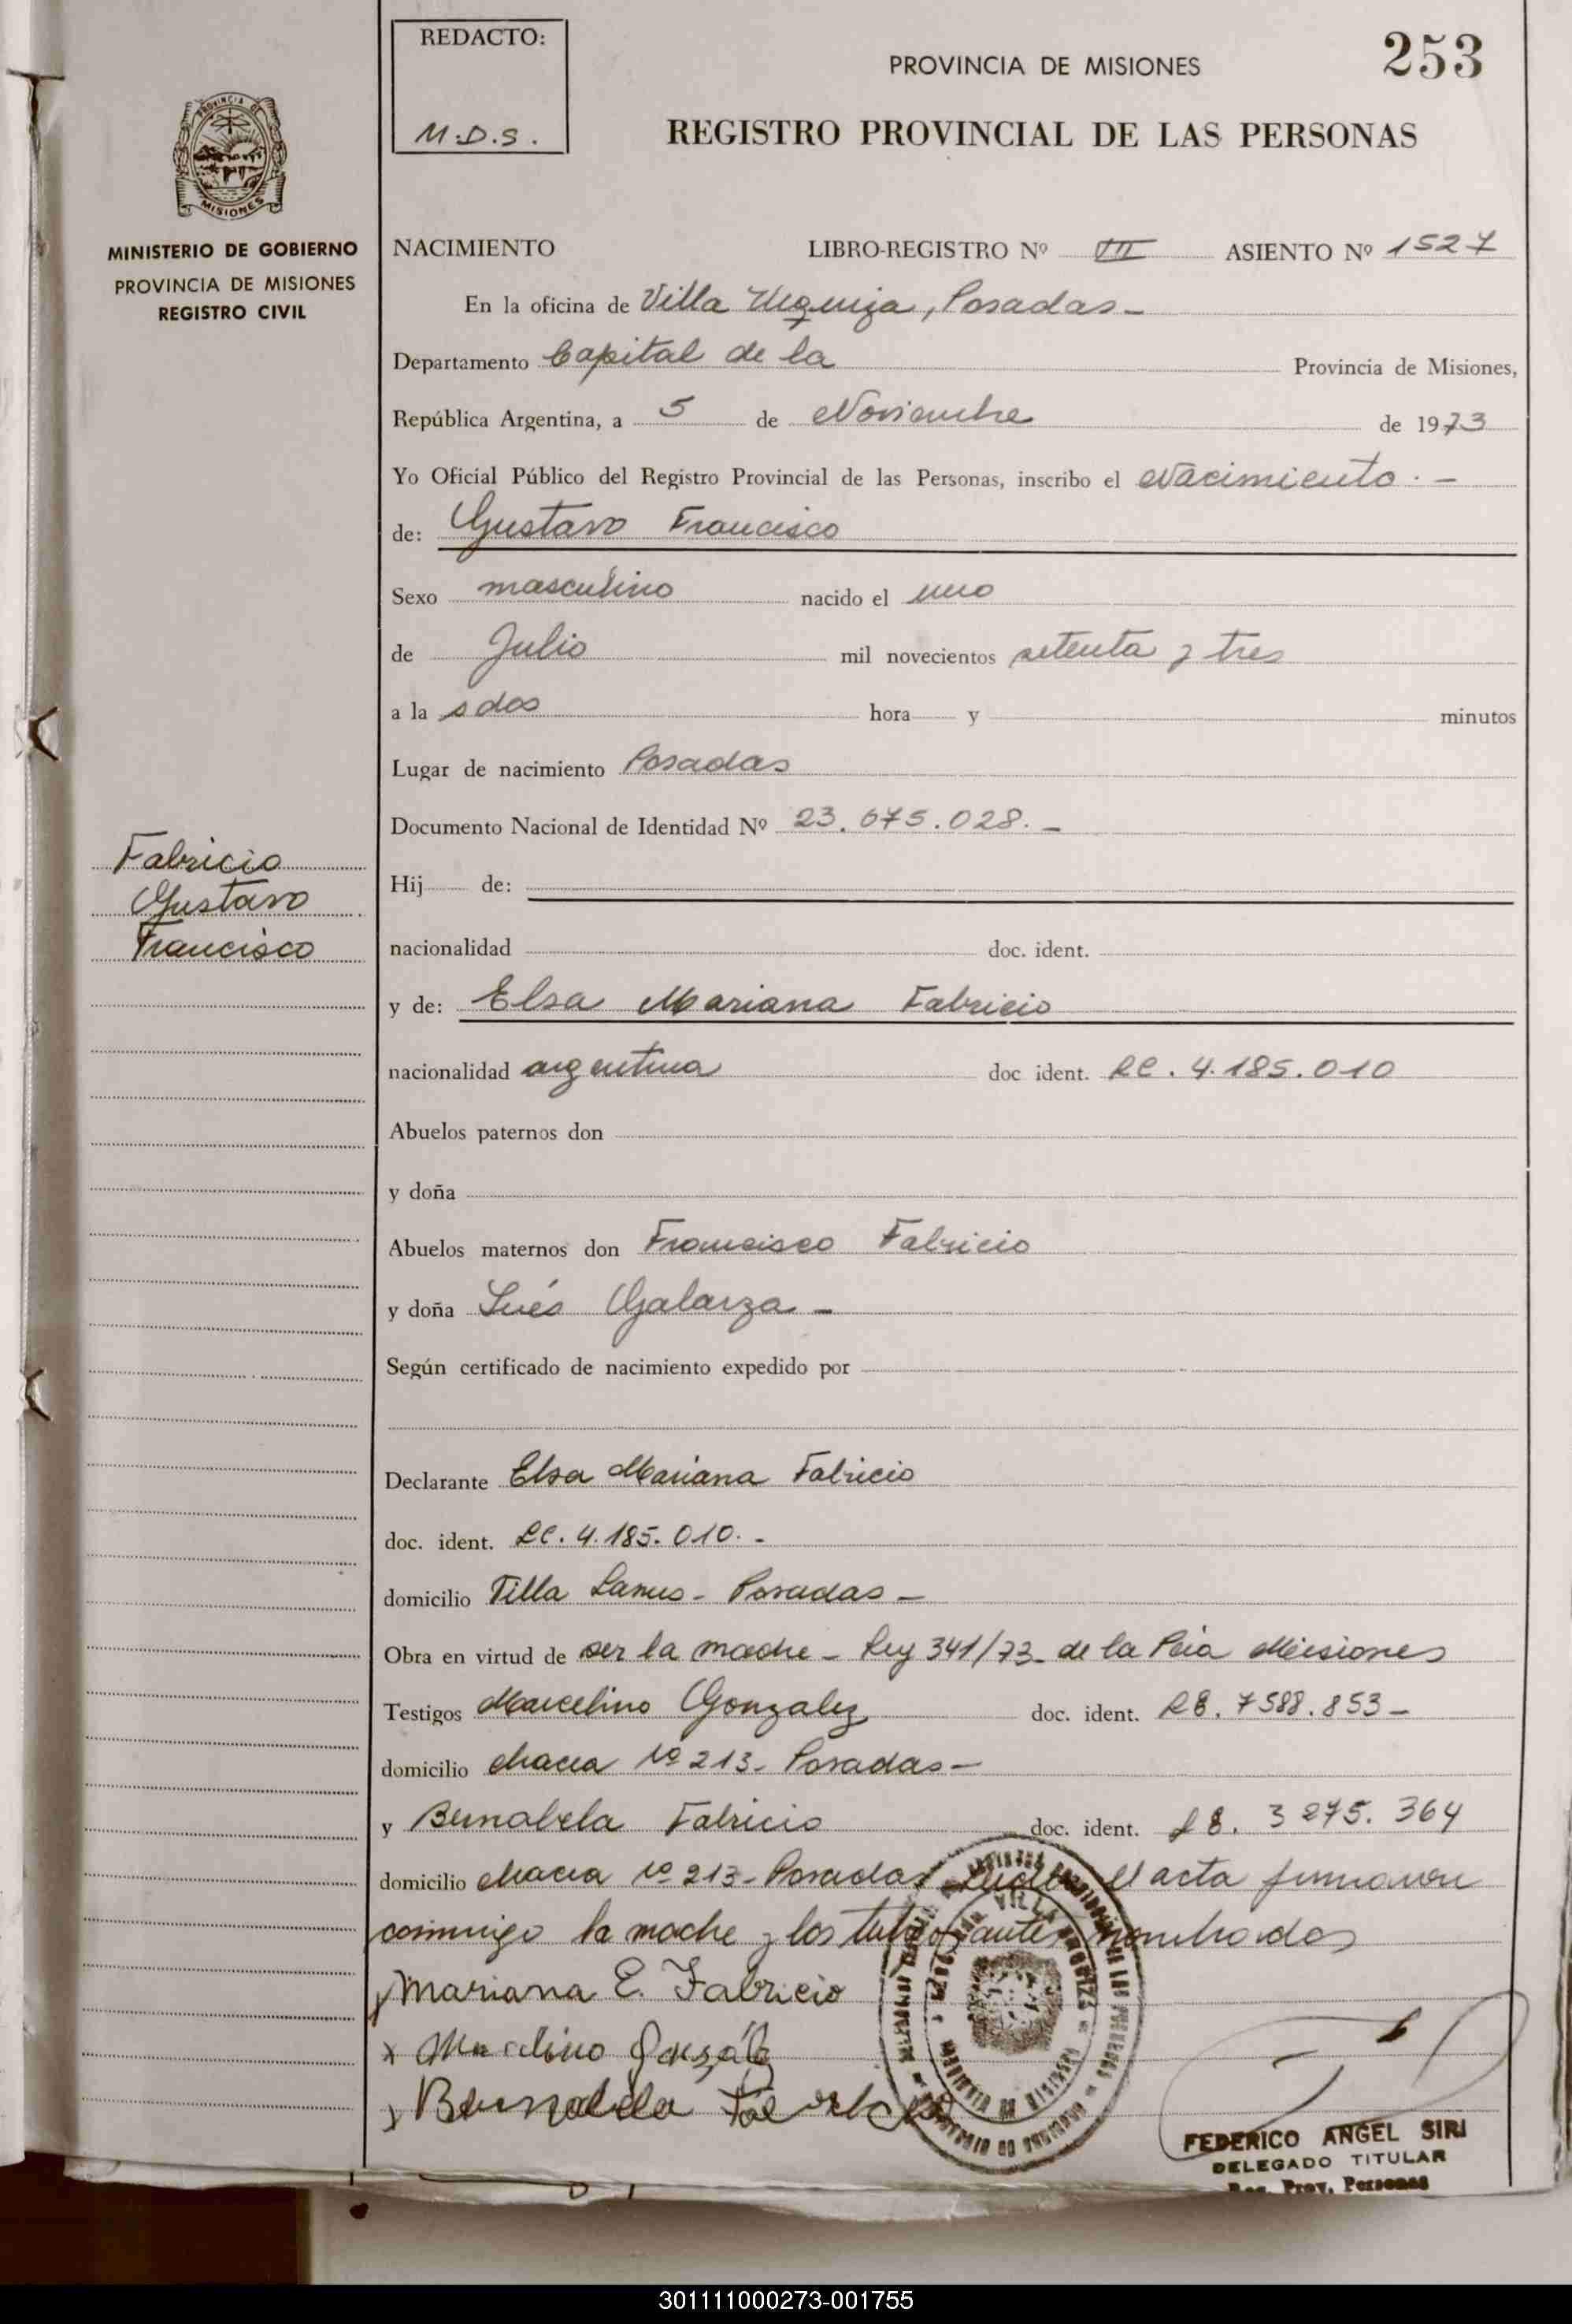 REDACTO:
M.D.S.
PROVINCIA DE MISIONES
253
REGISTRO PROVINCIAL DE LAS PERSONAS
PROVINCIA DE
MISIONES
MINISTERIO DE GOBIERNO
PROVINCIA DE MISIONES
REGISTRO CIVIL
NACIMIENTO LIBRO-REGISTRO Nº VII ASIENTO Nº 1527
En la oficina de Villa Urquiza, Posadas-
Departamento Capital de la Provincia de Misiones,
República Argentina, a 5 de Noviembre de 1973
Yo Oficial Público del Registro Provincial de las Personas, inscribo el Nacimiento.-
de: Gustavo Francisco
Sexo masculino nacido el uno
de Julio mil novecientos setenta y tres
a la s dos hora y minutos
Lugar de nacimiento Posadas
Documento Nacional de Identidad Nº 23.675.028.-
Fabricio
Gustavo
Francisco
Hij de:
nacionalidad doc. ident.
y de: Elsa Mariana Fabricio
nacionalidad argentina doc ident. LC. 4.185.010
Abuelos paternos don
y doña
Abuelos maternos don Francisco Fabricio
y doña Inés Galarza-
Según certificado de nacimiento expedido por
Declarante Elsa Mariana Fabricio
doc. ident. LC. 4.185.010.-
domicilio Villa Lanus- Posadas-
Obra en virtud de ser la madre- Ley 341/73- de la Pcia Misiones
Testigos Marcelino Gonzalez doc. ident. 7588.853-
domicilio chacra Nº 213- Posadas-
y Bernabela Fabricio doc. ident. 3 275.364
domicilio chacra Nº 213- Posadas el acta firmaron
conmigo la madre y los antes nombrados
Mariana E. Fabricio
x Marcelino Gonzálz
x Bernabela
FEDERICO ANGEL SIRI
DELEGADO TITULAR
Reg. Prov. Personas
301111000273-001755